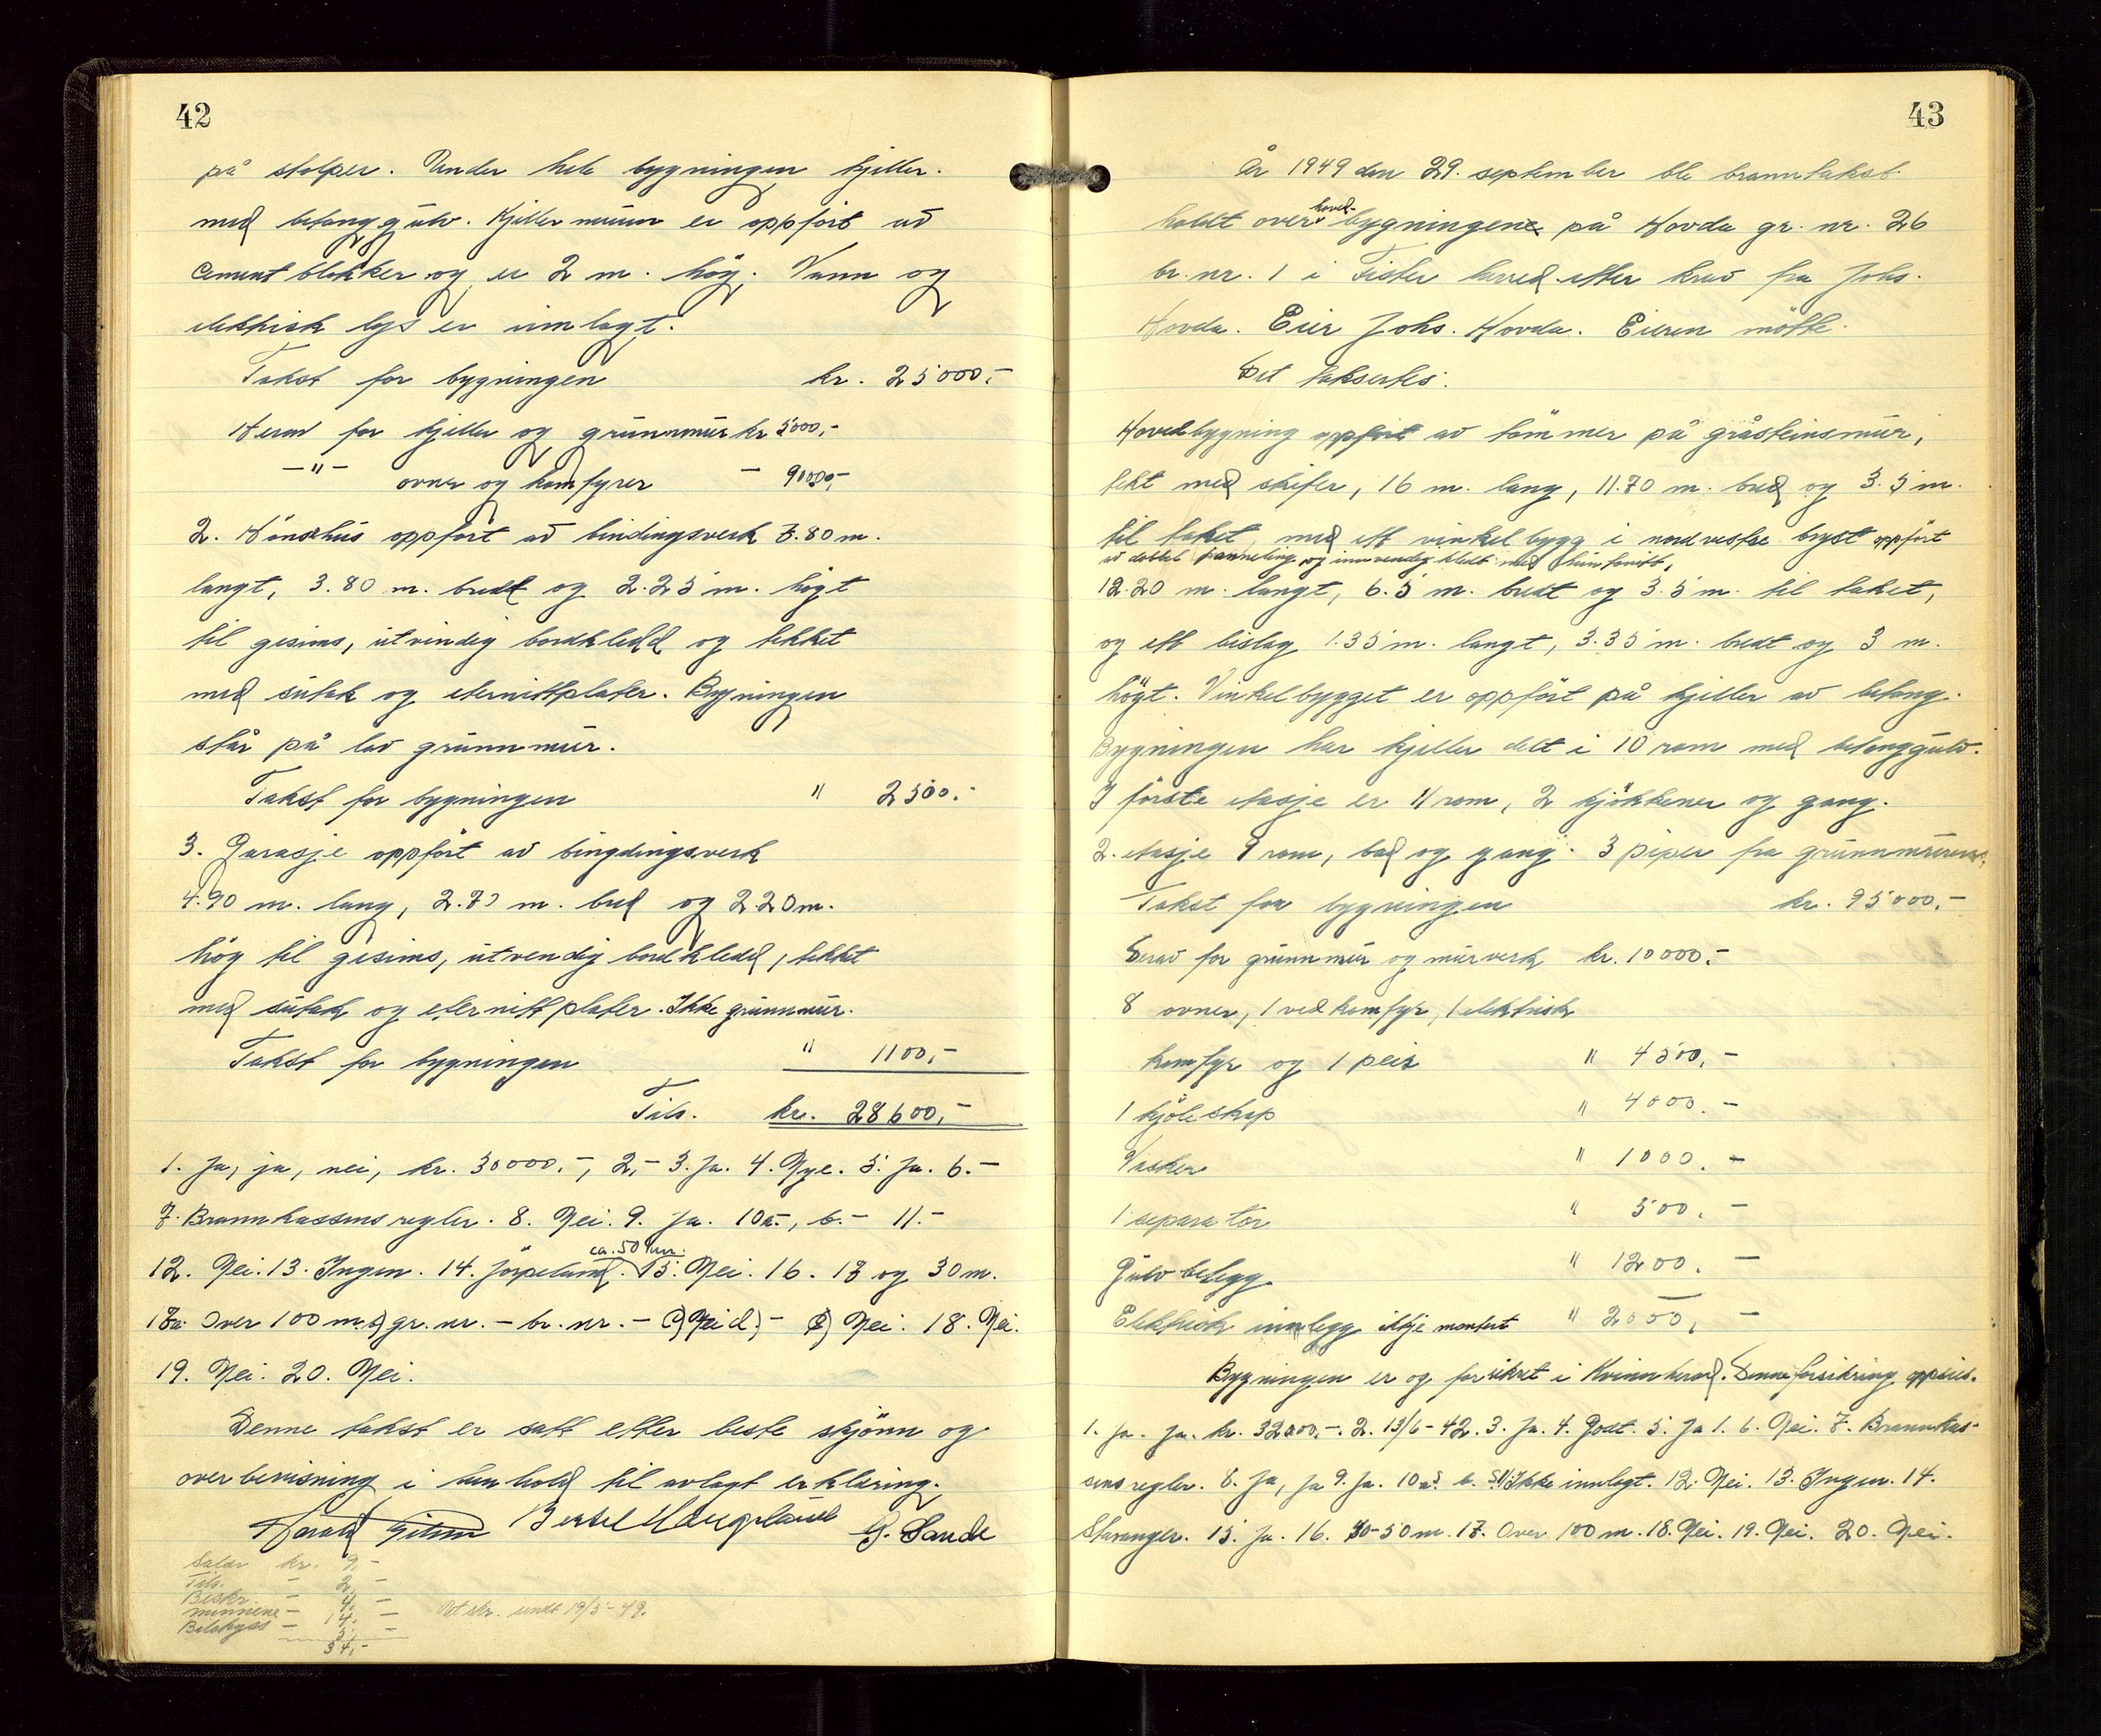 42
på stolper. Under hele bygningen kjeller
med betonggulv. Kjellermuren er oppfört av
Cementblokker og er 2 m. hög. Vann og
elektrisk lys er innlagt.
Takst for bygningen kr. 25000.-
Herav for kjeller og grunnmur kr 5000,-
-"- ovner og komfyrer - 900,-
2. Hönsehus oppfört av bindingsverk 7.80 m.
langt, 3.80 m. bredt og 2.25 m. högt
til gesims, utvendig bordkledd og tekket
med sutak og eternittplater. Bygningen
står på lav grunnmur.
Takst for bygningen " 2500.-
3. Garasje oppfört av bingdingsverk
4.90 m. lang, 2.70 m. bred og 2.20 m.
hög til gesims, utvendig bordkledd, tekket
med sutak og eternittplater. Ikke grunnmur.
Takst for bygningen " 1100,-
Tils. kr. 28600,-
1. Ja, ja, nei, kr. 30000.-, 2,- 3. Ja. 4. Nye. 5. Ja. 6.-
7. Brannkassens regler. 8. Nei. 9. Ja. 10a-, b.- 11.-
ca. 50 km.
12. Nei. 13. Ingen. 14. Jörpeland. 15. Nei. 16. 18 og 30 m.
17a. Over 100 m. b) gr. nr. - br. nr. - c) Nei d) - e) Nei. 18. Nei.
19. Nei. 20. Nei.
Denne takst er satt etter beste skjönn og
overbevisning i henhold til avlagt erklæring.
Bertel Haugeland G. Sande
Salær kr. 9,-
Tils. - 2,-
Beskr. - 4,-
minnene - 14,- Utskr. sendt 19/5-49.
Bilskyss - 5,-
34,-
43
År 1949 den 29. september ble branntakst
hoved-
holdt over bygningene på Hovda gr. nr. 26
br. nr. 1 i Fister herred etter krav fra Johs.
Hovda. Eier Johs. Hovda. Eieren mötte.
Det taksertes:
Hovedbygning oppfört av tömmer på gråsteinsmur,
tekt med skifer, 16 m. lang, 11.70 m. bred og 3.5 m.
til taket, med ett vinkelbygg i nordvestre bryst oppfört
av dobbel panneling og innvendig kledt med huntonitt,
12.20 m. langt, 6.5 m. bredt og 3.5 m. til taket,
og ett bislag 1.35 m. langt, 3.35 m. bredt og 3 m.
högt. Vinkelbygget er oppfört på kjeller av betong.
Bygningen har kjeller delt i 10 rom med betonggulv.
I förste etasje er 11 rom, 2 kjökkener og gang.
2. etasje 9 rom, bad og gang. 3 piper fra grunnmuren.
Takst for bygningen kr. 95000.-
Derav for grunnmur og murverk kr. 10000.-
8 ovner, 1 vedkomfyr, 1 elektrisk
komfyr og 1 peis " 4500.-
1 kjöleskap " 4000.-
Vasker " 1000.-
1 separator " 500.-
Gulvbelegg " 1200.-
Elektrisk innlegg ikkje montert " 2000,-
Bygningen er og forsikret i Kvinnherad. Denne forsikring oppsies.
1. Ja. Ja. kr. 32000.-. 2. 13/6-42. 3. Ja. 4. Godt. 5. Ja 1. 6. Nei. 7. Brannkas-
sens regler. 8. Ja, Ja 9. Ja. 10 a5 b. 5. 11. Ikke innlagt. 12. Nei. 13. Ingen. 14.
Stavanger. 15. Ja. 16. 30-50 m. 17. Over 100 m. 18. Nei. 19. Nei. 20. Nei.